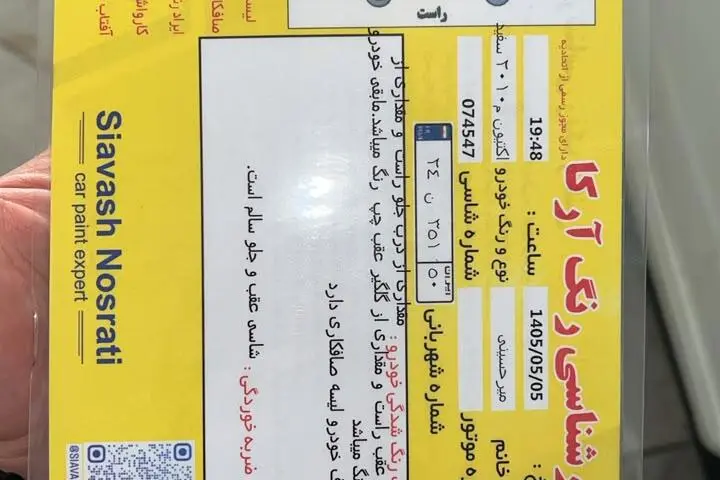 شناسی رنگ آرکا
دارای مجوز رسمی از اتحادیه
ساعت : 19:48
1405/05/05
خانم
میرحسینی
نوع و رنگ خودرو
اکتیون م۲۰۱۰ سفید
شماره شاسی
074547
ه موتور
شماره شهربانی
۲۴ ن ۳۵۱
ایران ۵۰
راست
رنگ شدگی خودرو : مقداری از درب جلو راست و مقداری از
عقب راست و مقداری از گلگیر عقب چپ رنگ میباشد.مابقی خودرو
میباشد
خودرو لیسه صافکاری دارد
ضربه خوردگی : شاسی عقب و جلو سالم است.
لیسه
صافکا
ایراد ر
کارواش
آفتاب
Siavash Nosrati
car paint expert
@SIAVA